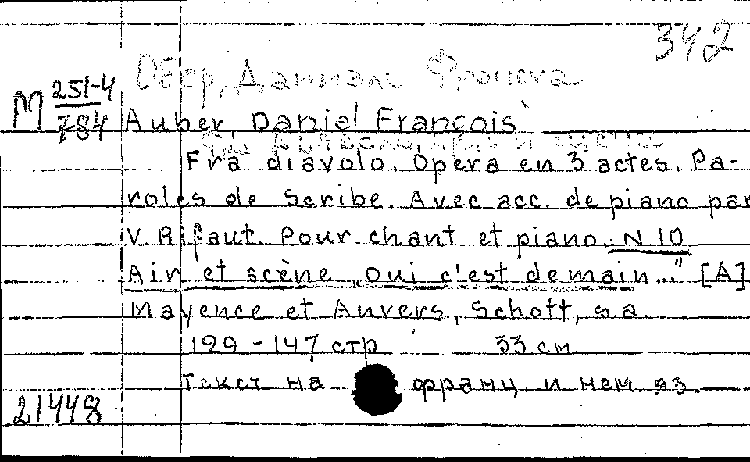 342
Обер, Даниэль Франсуа
M 251-4
784
Auber, Daniel François
Fra diavolo. Opéra en 3 actes. Pa-
roles de Scribe. Avec acc. de piano par
V. Rifaut. Pour chant et piano. N 10
Air et scène „Oui c'est demain..." [A]
Mayence et Anvers, Schott, s a
129 - 147 стр 33 см
Текст на франц и нем яз
21448